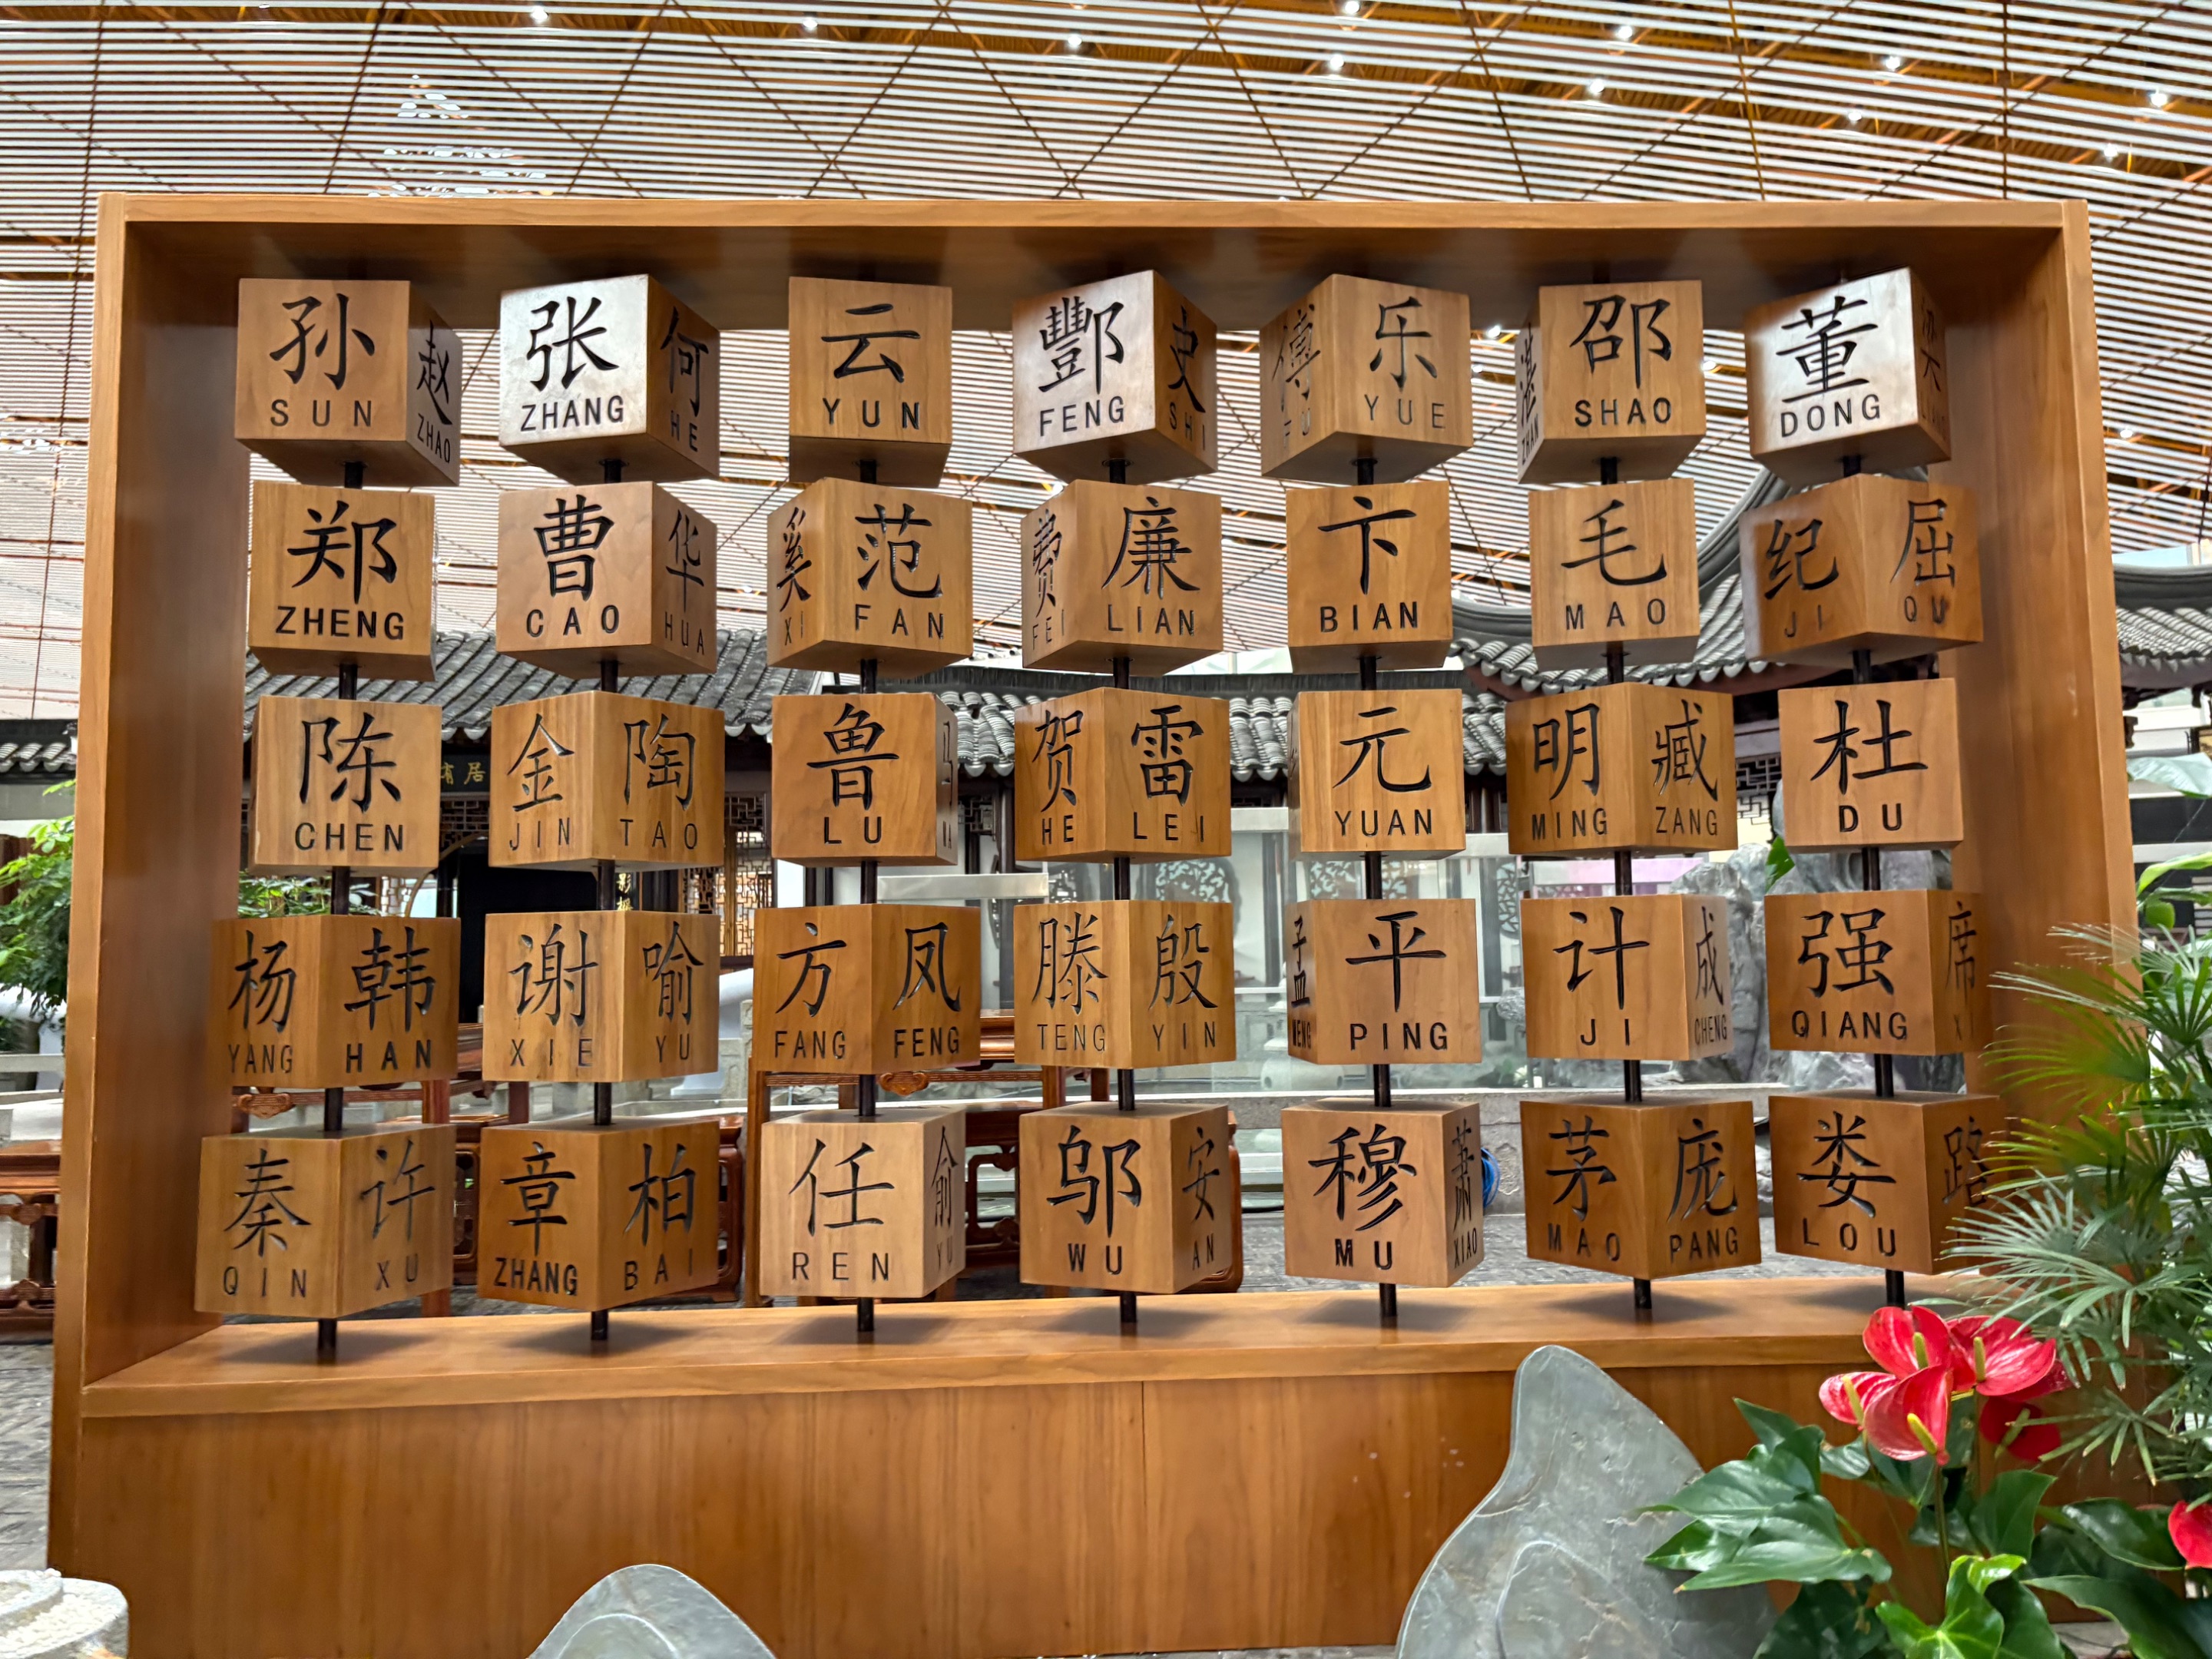 孙 赵 张 何 云 酆 史 傅 乐 湛 邵 董 梁
SUN ZHAO ZHANG HE YUN FENG SHI FU YUE ZHAN SHAO DONG
郑 曹 华 奚 范 费 廉 卞 毛 纪 屈
ZHENG CAO HUA XI FAN FEI LIAN BIAN MAO JI QU
陈 金 陶 鲁 马 贺 雷 元 明 臧 杜
CHEN JIN TAO LU HE LEI YUAN MING ZANG DU
杨 韩 谢 喻 方 凤 滕 殷 孟 平 计 成 强 席
YANG HAN XIE YU FANG FENG TENG YIN MENG PING JI CHENG QIANG XI
秦 许 章 柏 任 俞 邬 安 穆 萧 茅 庞 娄 路
QIN XU ZHANG BAI REN YU WU AN MU XIAO MAO PANG LOU